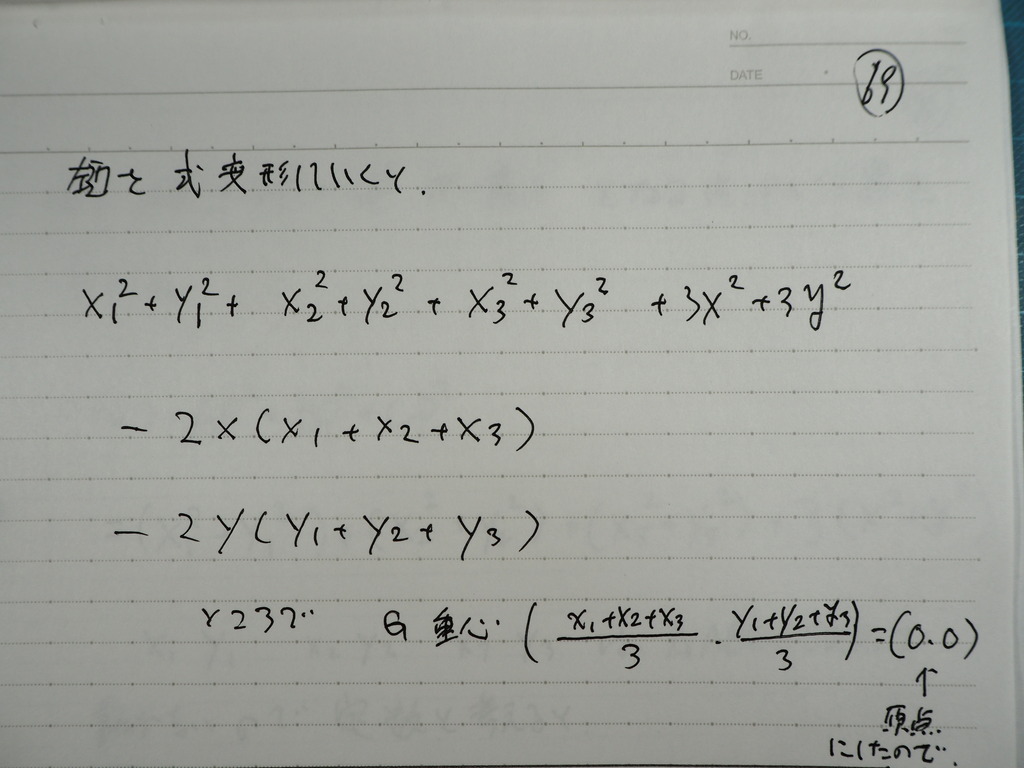 NO.
DATE
69
左辺を式変形していくと.
x₁² + y₁² + x₂² + y₂² + x₃² + y₃² + 3x² + 3y²
- 2x(x₁ + x₂ + x₃)
- 2y(y₁ + y₂ + y₃)
ところで G 重心 ( (x₁+x₂+x₃)/3 . (y₁+y₂+y₃)/3 ) = (0.0)
↑
原点
にしたので.